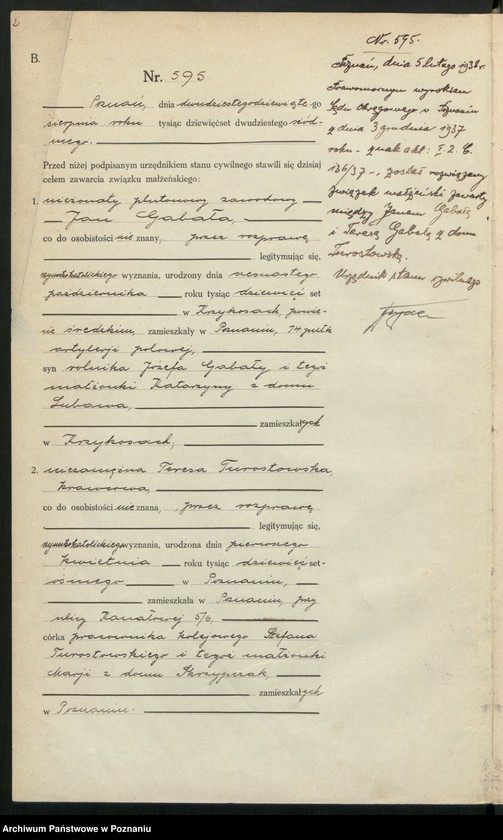 2
B.
Nr. 595
Poznań, dnia dwudziestegodziewiątego
sierpnia roku tysiąc dziewięćset dwudziestego siód-
mego.
Przed niżej podpisanym urzędnikiem stanu cywilnego stawili się dzisiaj
celem zawarcia związku małżeńskiego:
1. nieżonaty plutonowy zawodowy
Jan Gabała,
co do osobistości nie znany, przez rozprawę
legitymując się,
rzymskokatolickiego wyznania, urodzony dnia
października roku tysiąc dziewięćset
w Krzykosach, powie-
cie średzkim, zamieszkały w Poznaniu, 14 pułk
artylerji polowej,
syn rolnika Józefa Gabały i tegoż
małżonki Katarzyny z domu
Lubawa,
zamieszkałych
w Krzykosach,
2. niezamężna Teresa Turostowska,
krawcowa,
co do osobistości nieznana, przez rozprawę
legitymując się,
rzymskokatolickiego wyznania, urodzona dnia pierwszego
kwietnia roku tysiąc dziewięćset-
ósmego w Poznaniu,
zamieszkała w Poznaniu, przy
ulicy Kanałowej 5/6,
córka pracownika kolejowego Stefana
Turostowskiego i tegoż małżonki
Marji z domu Skrzypczak,
zamieszkałych
w Poznaniu.
Nr. 595.
Poznań, dnia 5 lutego 1938 r.
Prawomocnym wyrokiem
Sądu Okręgowego w Poznaniu
z dnia 3 grudnia 1937
roku - znak akt: I. 2. C.
136/37 -, został rozwiązany
związek małżeński zawarty
między Janem Gabałą
i Teresą Gabałą z domu
Turostowską.
Urzędnik stanu cywilnego
Archiwum Państwowe w Poznaniu